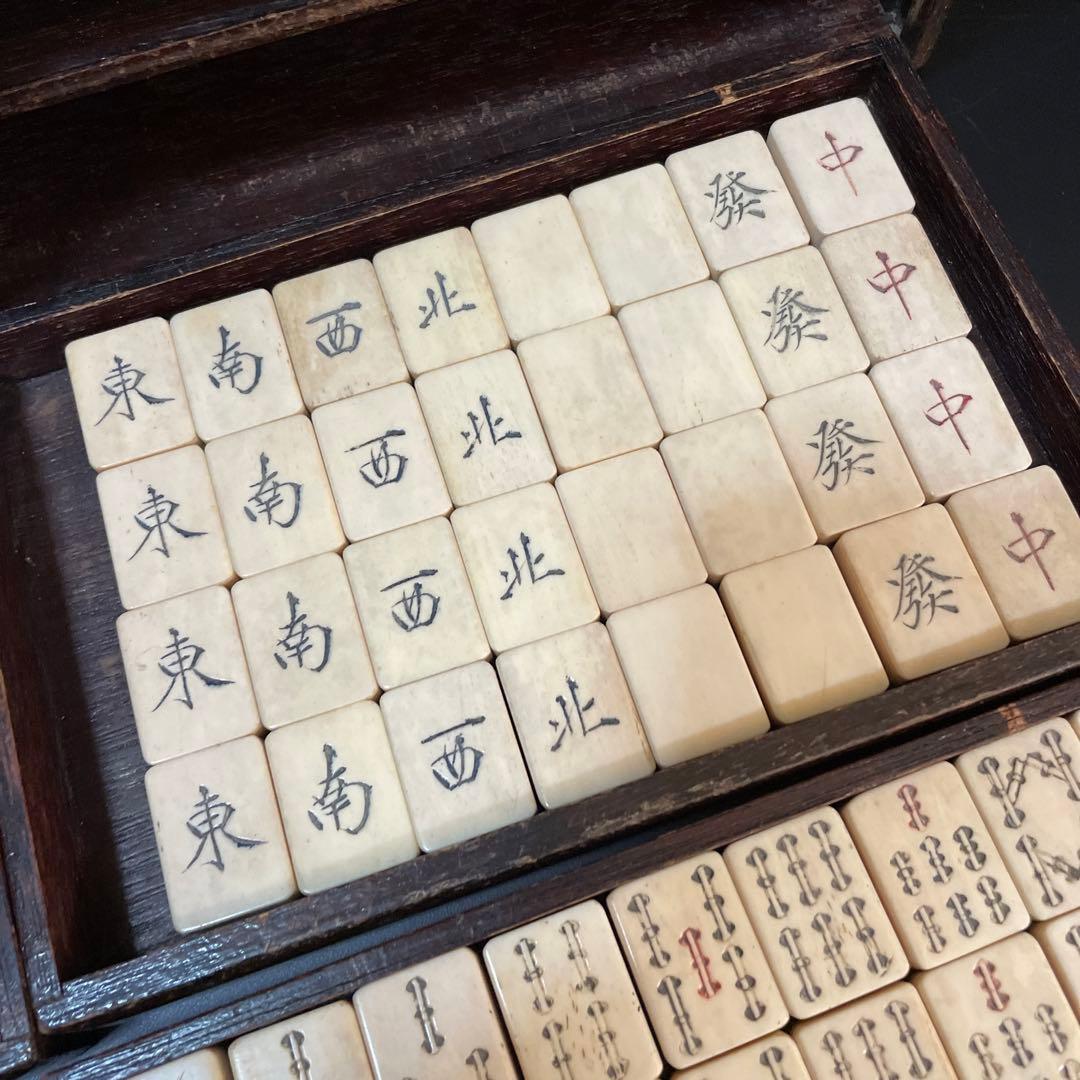 東 南 西 北 發 中
東 南 西 北 發 中
東 南 西 北 發 中
東 南 西 北 發 中